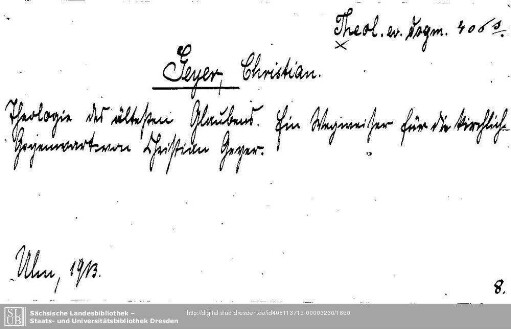 Theol. ev. dogm. 406 s.
Geyer, Christian.
Theologie des ältesten Glaubens. Ein Wegweiser für die kirchliche
Gegenwart von Christian Geyer.
Ulm, 1913.
8.
SLUB
Sächsische Landesbibliothek –
Staats- und Universitätsbibliothek Dresden